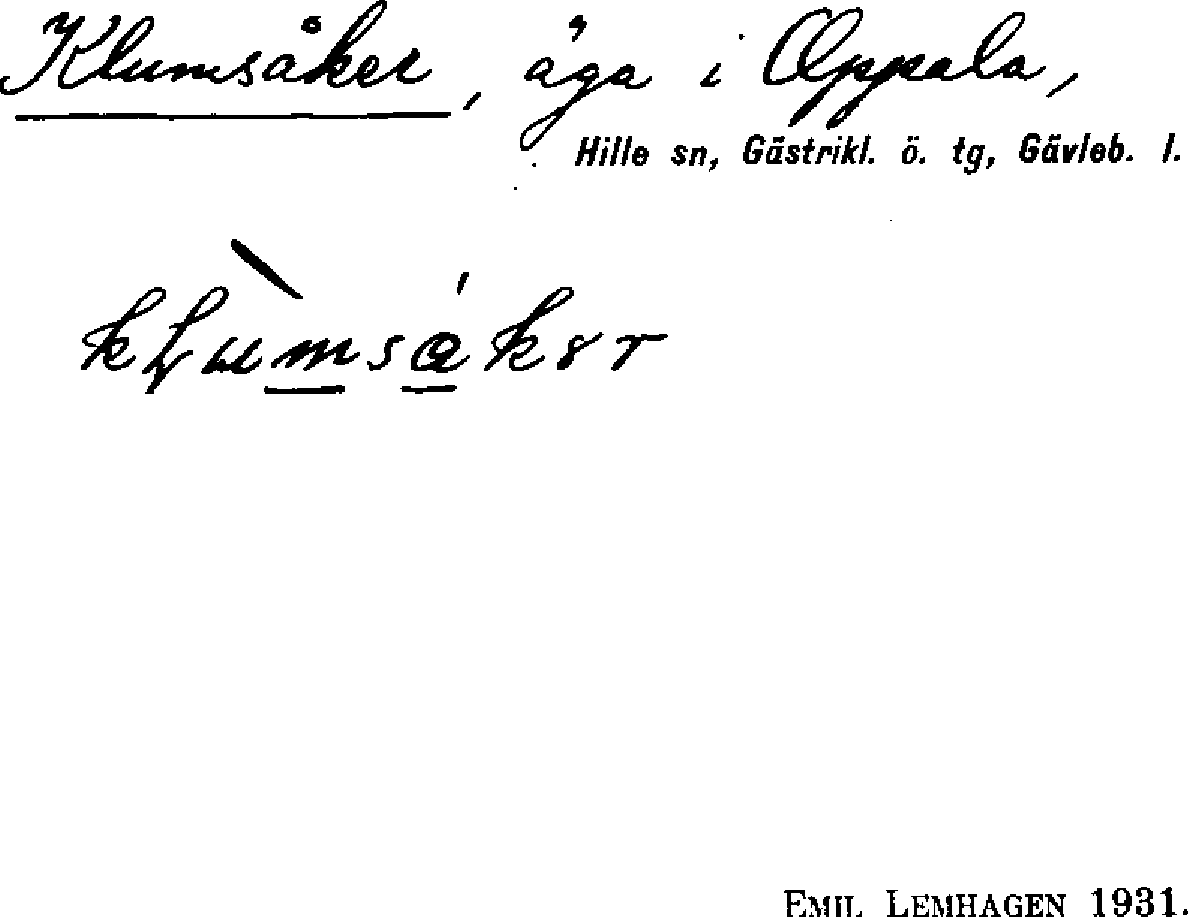 Klumsåker, äga i Oppala,
Hille sn, Gästrikl. ö. tg, Gävleb. l.
kḷùmsåkər
EMIL LEMHAGEN 1931.